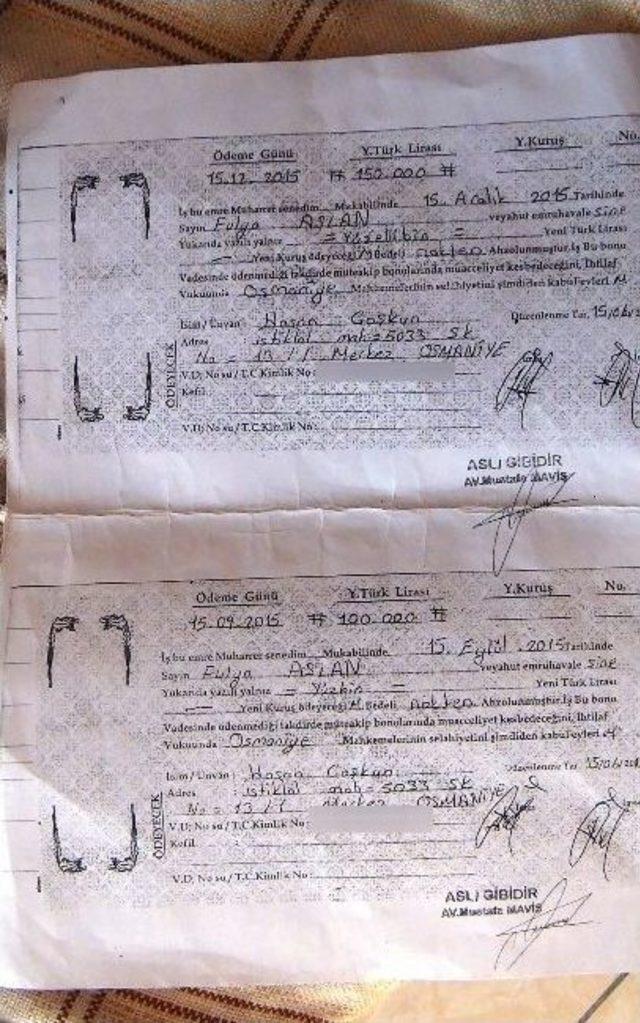 Ödeme Günü Y.Türk Lirası Y.Kuruş No.
15.12.2015 # 150.000 #
İş bu emre Muharrer senedim Mukabilinde 15. Aralık 2015 Tarihinde
Sayın Fulya ASLAN veyahut emruhavale sine
Yukarıda yazılı yalnız = Yüzellibin = Yeni Türk Lirası
Yeni Kuruş ödeyeceğim Bedeli nakten Ahzolunmuştur.İş Bu bono
Vadesinde ödenmediği takdirde müteakip bonolarında muacceliyet kesbedeceğini, İhtilaf
Vukuunda Osmaniye Mahkemelerinin selahiyetini şimdiden kabul eyleri M
İsim / Ünvan : Hasan Coşkun Düzenlenme Yer, 15/0
Adres : istiklal mah = 5033 SK
No = 13 / 1 Merkez OSMANİYE
V.D; No su / T.C.Kimlik No :
Kefil
V.D; No su / T.C.Kimlik No :
ÖDEYECEK
ASLI GİBİDİR
AV.Mustafa MAVİŞ
Ödeme Günü Y.Türk Lirası Y.Kuruş No.
15.09.2015 # 100.000 #
İş bu emre Muharrer senedim Mukabilinde 15. Eylül .2015 Tarihinde
Sayın Fulya ASLAN veyahut emruhavale sine
Yukarıda yazılı yalnız = Yüzbin = Yeni Türk Lirası
Yeni Kuruş ödeyeceği M Bedeli nakten Ahzolunmuştur.İş Bu bono
Vadesinde ödenmediği takdirde müteakip bonolarında muacceliyet kesbedeceğini, İhtilaf
Vukuunda Osmaniye Mahkemelerinin selahiyetini şimdiden kabul eyleri M
İsim / Ünvan : Hasan Coşkun Düzenlenme Yer
Adres : istiklal mah = 5033 SK
No = 13 / 1 Merkez OSMANİYE
V.D; No su / T.C.Kimlik No :
Kefil
V.D; No su / T.C.Kimlik No :
ÖDEYECEK
ASLI GİBİDİR
AV.Mustafa MAVİŞ